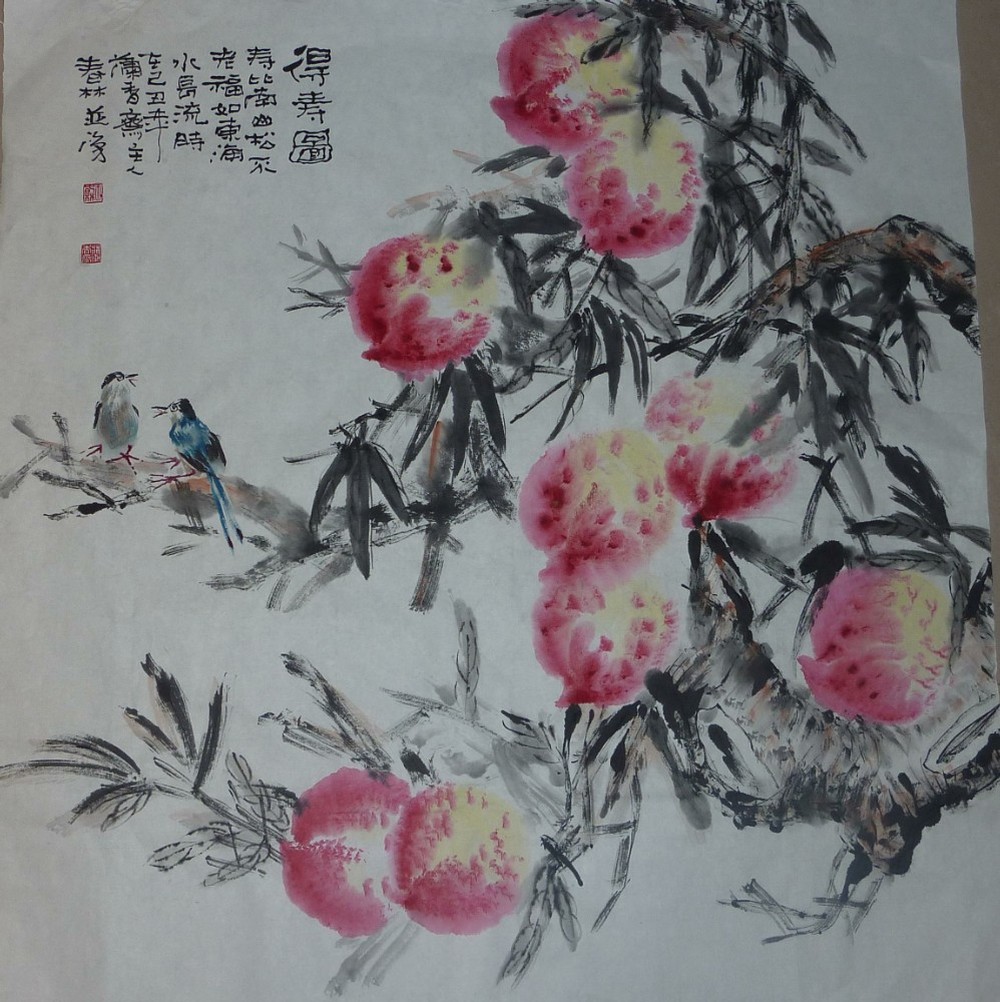 得寿圖
寿比南山松不
老福如東海
水長流時
在己丑年
香齋主人
春林並